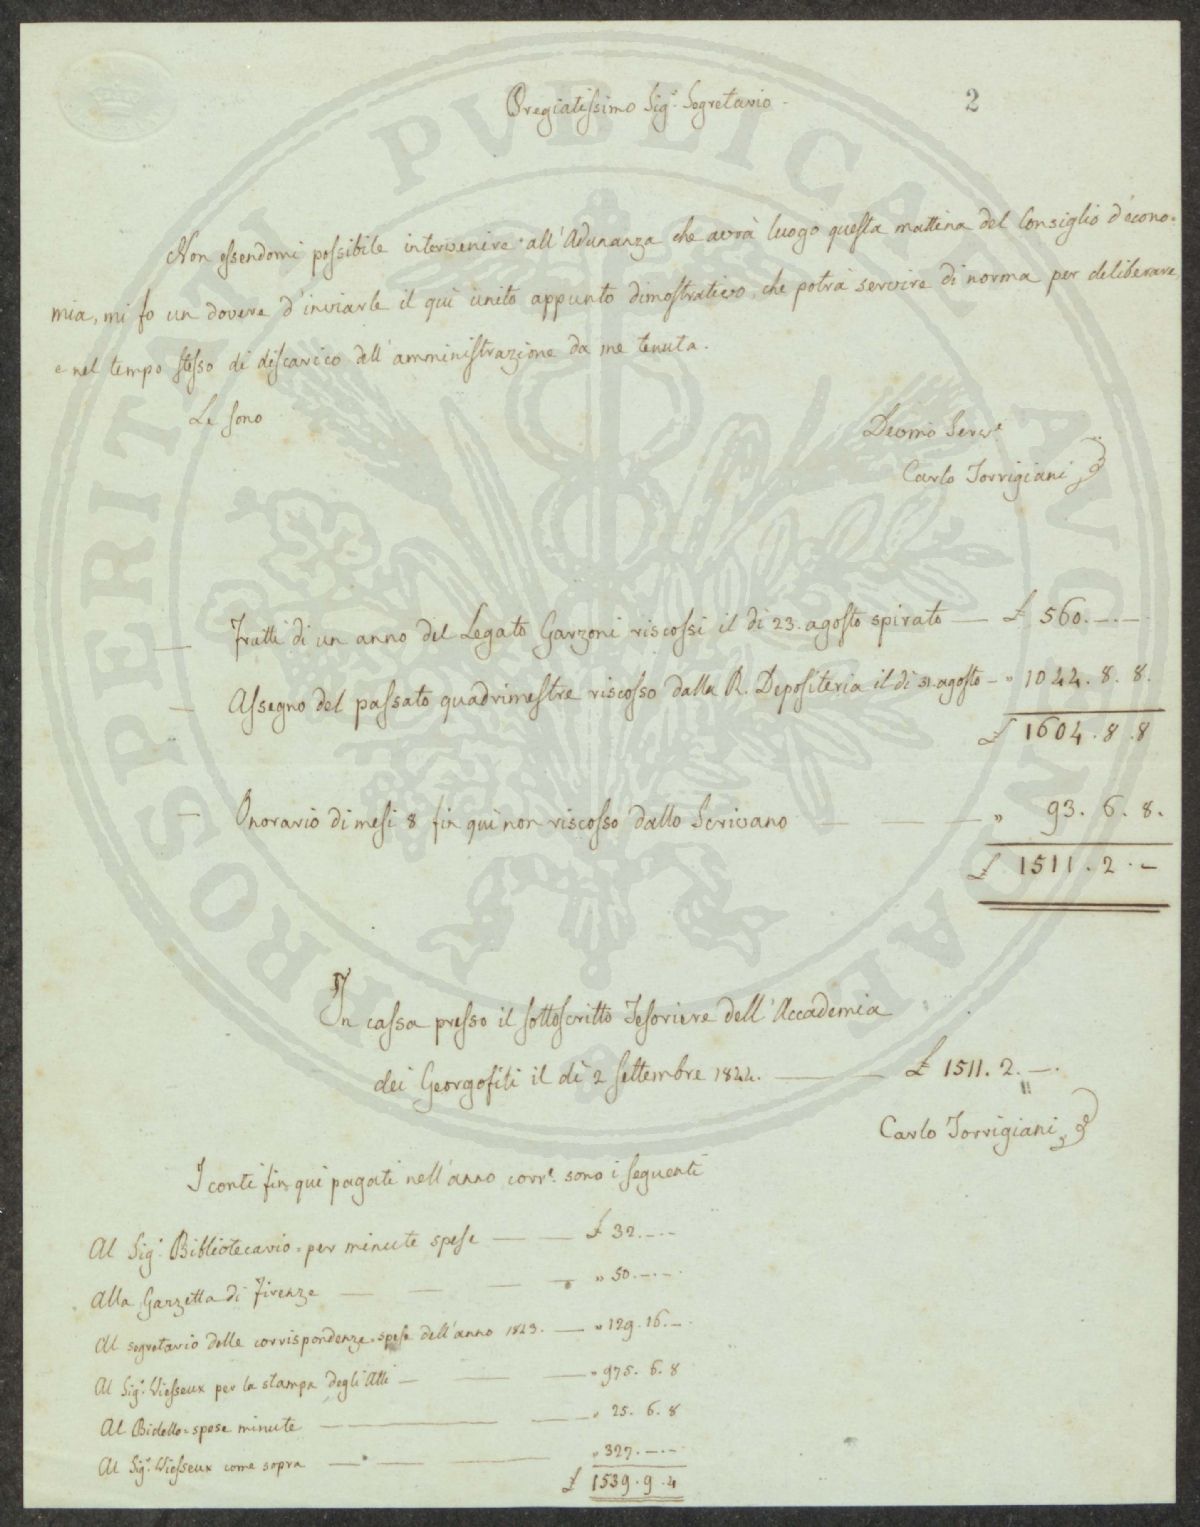 2
Pregiatissimo Sigr. Segretario
Non essendomi possibile intervenire all'Adunanza che avrà luogo questa mattina del Consiglio d'econo=
mia, mi fo un dovere d'inviarle il qui unito appunto dimostrativo, che potrà servire di norma per deliberare,
e nel tempo stesso di discarico dell'amministrazione da me tenuta.
Le sono
Devmo Serve.
Carlo Torrigiani
— Frutti di un anno del Legato Garzoni riscossi il dì 23. agosto spirato — £ 560.—.—
— Assegno del passato quadrimestre riscosso dalla R. Depositeria il dì 31. agosto — " 1044. 8. 8.
£ 1604. 8. 8
— Onorario di mesi 8 fin qui non riscosso dallo Scrivano — — — " 93. 6. 8.
£ 1511. 2. —
In cassa presso il sottoscritto Tesoriere dell'Accademia
dei Georgofili il dì 2 settembre 1844. — £ 1511. 2. —.
Carlo Torrigiani
I conti fin qui pagati nell'anno corre. sono i seguenti
Al Sigr. Bibliotecario = per minute spese — — £ 32.—.—
Alla Gazzetta di Firenze — — — — " 50.—.—
Al segretario delle corrispondenze = spese dell'anno 1843. — " 129. 16. —.
Al Sigr. Viesseux per la stampa degli Atti — — — " 975. 6. 8
Al Bidello = spese minute — — " 25. 6. 8
Al Sigr. Viesseux come sopra — — — " 327.—.—
£ 1539. 9. 4
PROSPERITATI PVBLICAE AVGENDAE